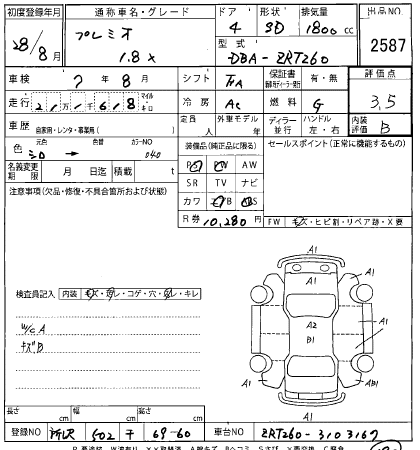 初度登録年月 通称車名・グレード ドア 形状 排気量 出品NO
28/8月 プレミオ 1.8x 4 SD 1800 cc 2587
型式 DBA-ZRT260
車検 7年8月 シフト FA 保証書 有・無 評価点
走行 マイル キロ 冷房 AC 燃料 G 3.5
車歴 自家用・レンタ・事業用( ) 定員 人 外車モデル 年 ディーラー 並行 ハンドル 左・右 内装評価 B
色 元色 シロ 色替 カラーNO 040 装備品(純正品に限る) セールスポイント(正常に機能するもの)
名義変更期限 月 日迄 積載 t PS PW AW
注意事項(欠品・修復・不具合箇所および状態) SR TV ナビ
カワ
R券 10,280円 FW キズ・ヒビ割・リペア跡・X要
A1
A1 A1
検査員記入 内装 キズ・汚レ・コゲ・穴・キレ
A2 A1
W/C A B1
キズB
A1 AB1
A1
長さ cm 幅 cm 高さ cm
登録NO 所沢 502 テ 69-60 車台NO ZRT260-3103167